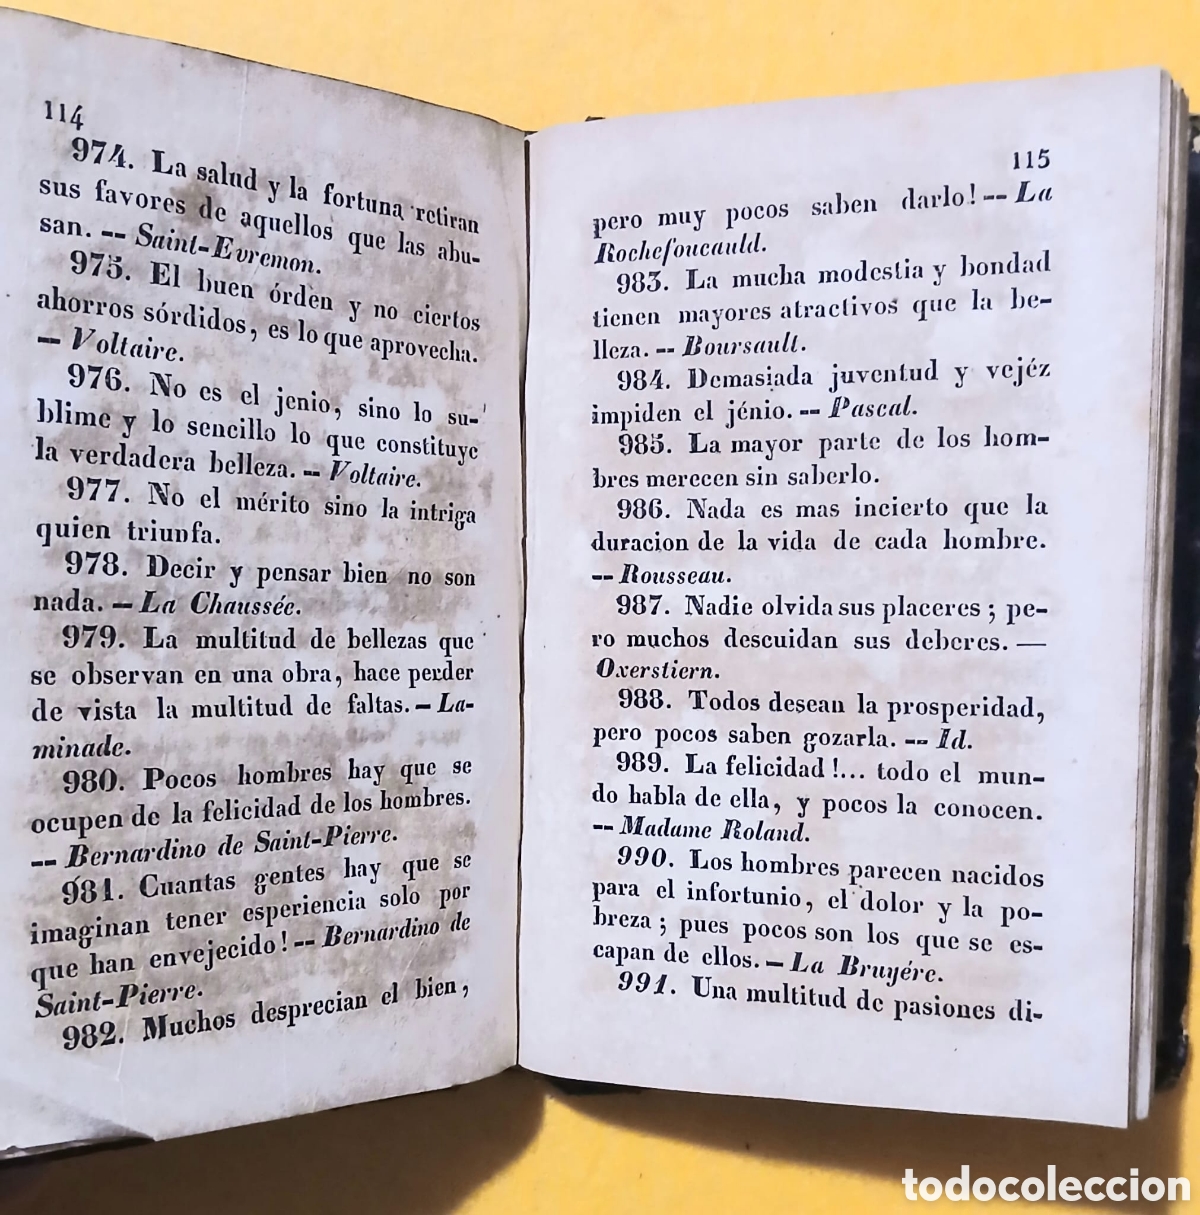 114
974. La salud y la fortuna retiran
sus favores de aquellos que las abu-
san. -- Saint-Evremon.
975. El buen órden y no ciertos
ahorros sórdidos, es lo que aprovecha.
-- Voltaire.
976. No es el jenio, sino lo su-
blime y lo sencillo lo que constituye
la verdadera belleza. -- Voltaire.
977. No el mérito sino la intriga
quien triunfa.
978. Decir y pensar bien no son
nada. — La Chaussée.
979. La multitud de bellezas que
se observan en una obra, hace perder
de vista la multitud de faltas. — La-
minade.
980. Pocos hombres hay que se
ocupen de la felicidad de los hombres.
-- Bernardino de Saint-Pierre.
981. Cuantas gentes hay que se
imaginan tener esperiencia solo por
que han envejecido! -- Bernardino de
Saint-Pierre.
982. Muchos desprecian el bien,
115
pero muy pocos saben darlo! -- La
Rochefoucauld.
983. La mucha modestia y bondad
tienen mayores atractivos que la be-
lleza. -- Boursault.
984. Demasiada juventud y vejéz
impiden el jénio. -- Pascal.
985. La mayor parte de los hom-
bres merecen sin saberlo.
986. Nada es mas incierto que la
duracion de la vida de cada hombre.
-- Rousseau.
987. Nadie olvida sus placeres ; pe-
ro muchos descuidan sus deberes. —
Oxerstiern.
988. Todos desean la prosperidad,
pero pocos saben gozarla. -- Id.
989. La felicidad!... todo el mun-
do habla de ella, y pocos la conocen.
-- Madame Roland.
990. Los hombres parecen nacidos
para el infortunio, el dolor y la po-
breza ; pues pocos son los que se es-
capan de ellos. — La Bruyére.
991. Una multitud de pasiones di-
todocoleccion